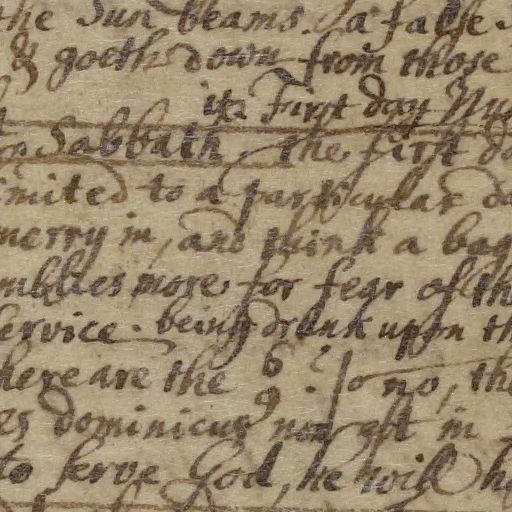 the Sun beams. a false
& goeths down from those
its First day
Sabbath the first
imited to a particular
merry in, and think a
mblies more for fear of th
service. being drunk upon th
here are the 6 9. no, the
es dominicus non est in
to serve God, he will h